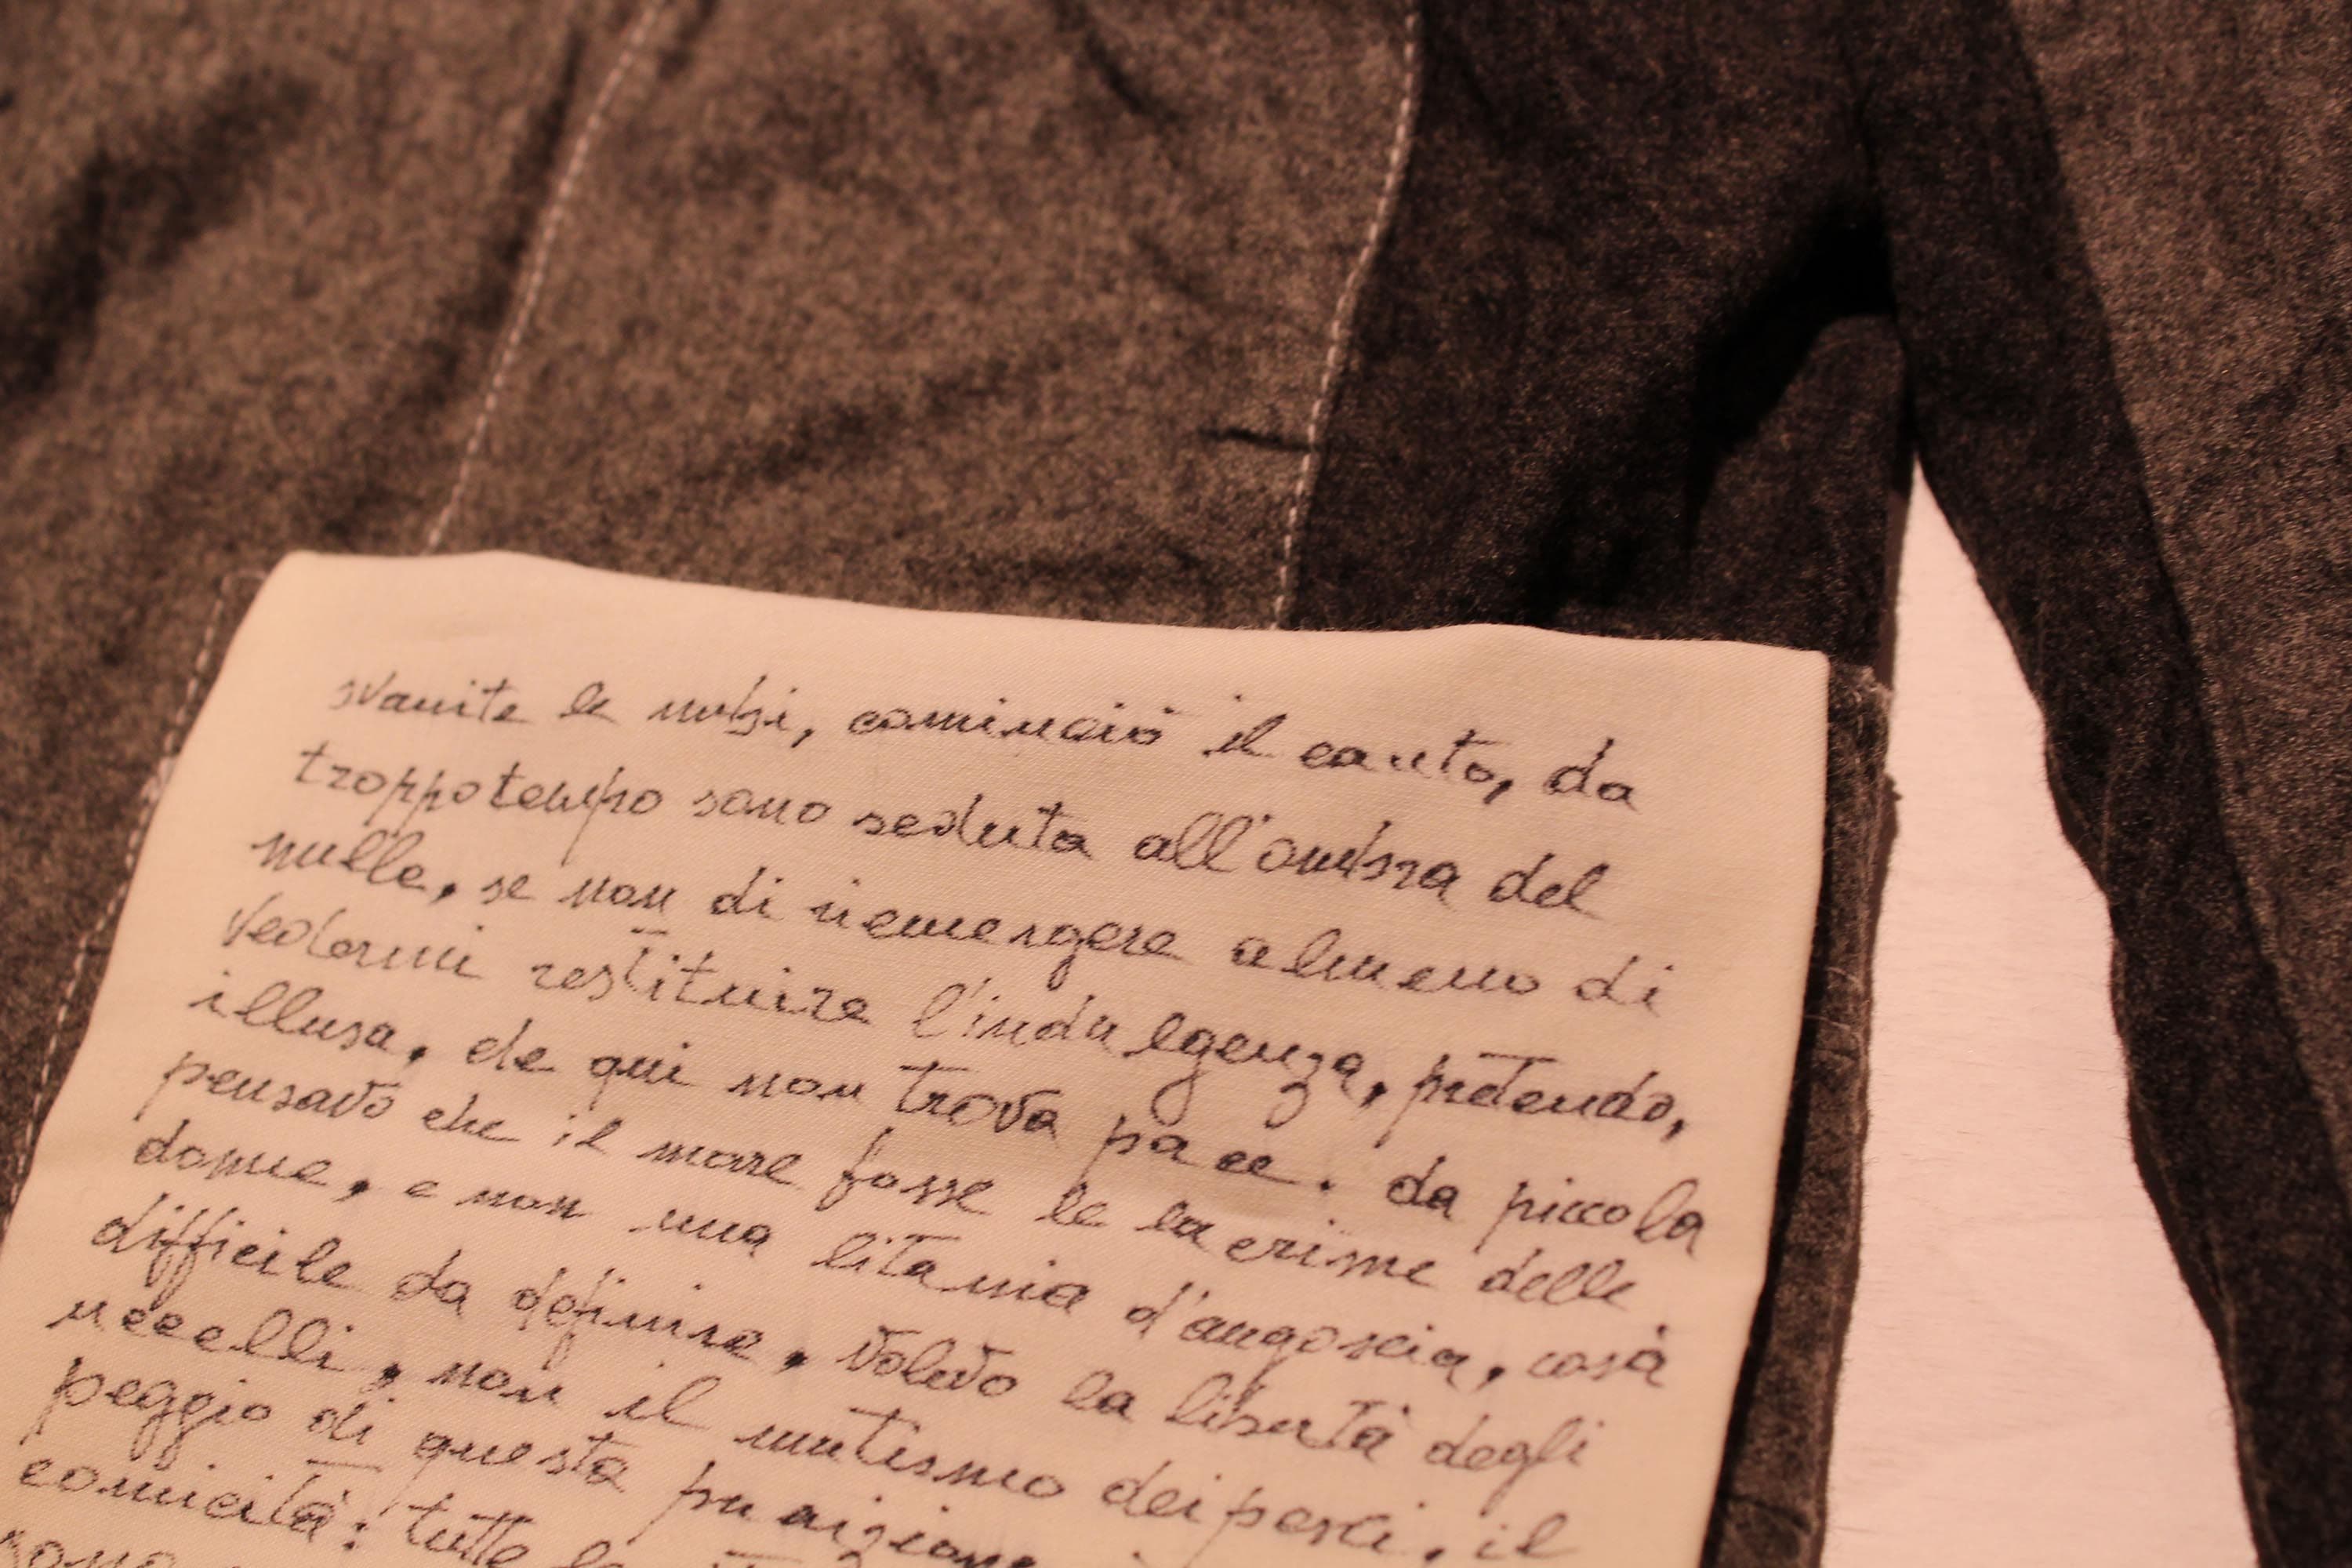 svanite le nubi, cominciò il canto, da
troppo tempo sono seduta all'ombra del
nulla, se non di riemergere almeno di
vedermi restituire l'indulgenza, pretendo,
illusa, che qui non trova pace. da piccola
pensavo che il mare fosse le lacrime delle
donne, e non una litania d'angoscia, così
difficile da definire, volevo la libertà degli
uccelli, non il mutismo dei pesci, il
peggio di questa punizione
comicità: tutte le
sono